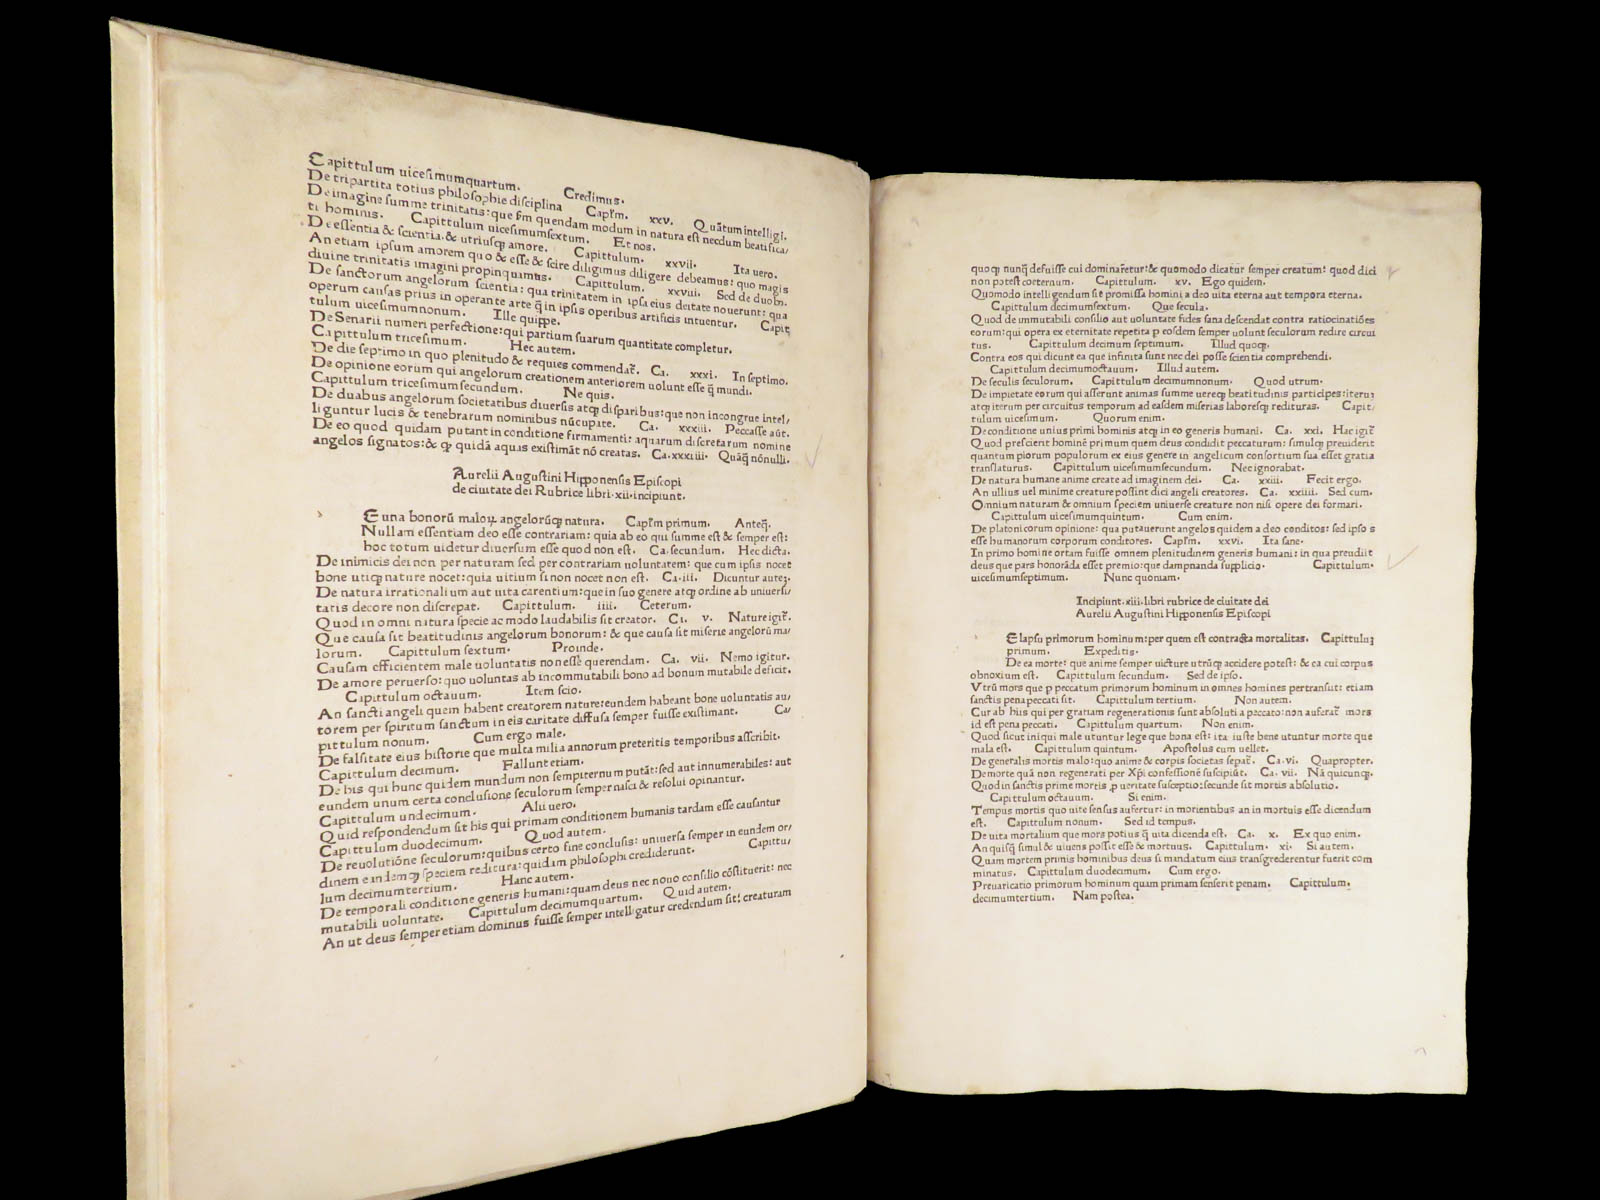 Capittulum uicesimumquartum. Credimus.
De tripartita totius philosophie disciplina Capľm. xxv. Quātum intelligi.
De imagine summe trinitatis: que ſm quendam modum in natura est necdum beatifica/
ti hominis. Capittulum uicesimumsextum. Et nos.
De essentia & scientia. & utriusq; amore. Capittulum. xxvii. Ita uero.
An etiam ipsum amorem quo & esse & scire diligimus diligere debeamus: quo magis
diuine trinitatis imagini propinquamus. Capittulum. xxviii. Sed de duob;.
De sanctorum angelorum scientia: qua trinitatem in ipsa eius deitate nouerunt: qua
operum causas prius in operante arte q̄ in ipsis operibus artificis intuentur. Capit
tulum uicesimumnonum. Ille quippe.
De Senarii numeri perfectione: qui partium suarum quantitate completur.
Capittulum tricesimum. Hec autem.
De die septimo in quo plenitudo & requies commendat̄. Ca. xxxi. In septimo.
De opinione eorum qui angelorum creationem anteriorem uolunt esse q̄ mundi.
Capittulum tricesimumsecundum. Ne quis.
De duabus angelorum societatibus diuersis atq; disparibus: que non incongrue intel/
liguntur lucis & tenebrarum nominibus nūcupate. Ca. xxxiii. Peccasse aūt.
De eo quod quidam putant in conditione firmamenti: aquarum discretarum nomine
angelos signatos: & q; quidā aquas existimāt nō creatas. Ca. xxxiiii. Quāq̄ nōnulli.
Aurelii Augustini Hipponensis Episcopi
de ciuitate dei Rubrice libri .xii. incipiunt.
E una bonorū maloꝝ angelorūq; natura. Capľm primum. Anteq̄.
Nullam essentiam deo esse contrariam: quia ab eo qui summe est & semper est:
hoc totum uidetur diuersum esse quod non est. Ca. secundum. Hec dicta.
De inimicis dei non per naturam sed per contrariam uoluntatem: que cum ipsis nocet
bone utiq; nature nocet: quia uitium si non nocet non est. Ca. iii. Dicuntur autē.
De natura irrationalium aut uita carentium: que in suo genere atq; ordine ab uniuersi/
tatis decore non discrepat. Capittulum. iiii. Ceterum.
Quod in omni natura specie ac modo laudabilis sit creator. Ca. v. Nature igit̄.
Que causa sit beatitudinis angelorum bonorum: & que causa sit miserie angelorū ma/
lorum. Capittulum sextum. Proinde.
Causam efficientem male uoluntatis non esse querendam. Ca. vii. Nemo igitur.
De amore peruerso: quo uoluntas ab incommutabili bono ad bonum mutabile deficit.
Capittulum octauum. Item scio.
An sancti angeli quem habent creatorem nature: eundem habeant bone uoluntatis au/
torem per spiritum sanctum in eis caritate diffusa semper fuisse existimant. Ca/
pittulum nonum. Cum ergo male.
De falsitate eius historie que multa milia annorum preteritis temporibus asscribit.
Capittulum decimum. Fallunt etiam.
De his qui hunc quidem mundum non sempiternum putāt: sed aut innumerabiles: aut
eundem unum certa conclusione seculorum semper nasci & resolui opinantur.
Capittulum undecimum. Alii uero.
Quid respondendum sit his qui primam conditionem humanis tardam esse causantur
Capittulum duodecimum. Quod autem.
De reuolutiōne seculorum: quibus certo fine conclusis: uniuersa semper in eundem or/
dinem eandemq; speciem reditura: quidam philosophi crediderunt. Capittu/
lum decimumtertium. Hanc autem.
De temporali conditione generis humani: quam deus nec nouo consilio cōstituerit: nec
mutabili uoluntate. Capittulum decimumquartum. Quid autem.
An ut deus semper etiam dominus fuisse semper intelligatur credendum sit: creaturam
quoq; nunq̄ defuisse cui dominaretur: & quomodo dicatur semper creatum: quod dici
non potest coeternum. Capittulum. xv. Ego quidem.
Quomodo intelligendum sit promissa homini a deo uita eterna aut tempora eterna.
Capittulum decimumsextum. Que secula.
Quod de immutabili consilio aut uoluntate fides sana descendat contra ratiocinatiōes
eorum: qui opera ex eternitate repetita p eosdem semper uolunt seculorum redire circui
tus. Capittulum decimum septimum. Illud quoq;.
Contra eos qui dicunt ea que infinita sunt nec dei posse scientia comprehendi.
Capittulum decimumoctauum. Illud autem.
De seculis seculorum. Capittulum decimumnonum. Quod utrum.
De impietate eorum qui asserunt animas summe uereq; beatitudinis participes: iterū
atq; iterum per circuitus temporum ad easdem miserias laboresq; redituras. Capit/
tulum uicesimum. Quorum enim.
De conditione unius primi hominis atq; in eo generis humani. Ca. xxi. Hac igit̄
Quod prescierit hominē primum quem deus condidit peccaturum: simulq; preuiderit
quantum piorum populorum ex eius genere in angelicum consortium sua esset gratia
translaturus. Capittulum uicesimumsecundum. Nec ignorabat.
De natura humane anime create ad imaginem dei. Ca. xxiii. Fecit ergo.
An ullius uel minime creature possint dici angeli creatores. Ca. xxiiii. Sed cum.
Omnium naturam & omnium speciem uniuerse creature non nisi opere dei formari.
Capittulum uicesimumquintum. Cum enim.
De platonicorum opinione: qua putauerunt angelos quidem a deo conditos: sed ipso s
esse humanorum corporum conditores. Capľm. xxvi. Ita sane.
In primo homine ortam fuisse omnem plenitudinem generis humani: in qua preuidit
deus que pars honorāda esset premio: que dampnanda supplicio. Capittulum.
uicesimumseptimum. Nunc quoniam.
Incipiunt .xiii. libri rubrice de ciuitate dei
Aurelii Augustini Hipponensis Episcopi
E lapsu primorum hominum: per quem est contracta mortalitas. Capittulū
primum. Expeditis.
De ea morte: que anime semper uicture utrūq; accidere potest: & ea cui corpus
obnoxium est. Capittulum secundum. Sed de ipso.
Vtrū mors que p peccatum primorum hominum in omnes homines pertransiit: etiam
sanctis pena peccati sit. Capittulum tertium. Non autem.
Cur ab hiis qui per gratiam regenerationis sunt absoluti a peccato: non auferat̄ mors
id est pena peccati. Capittulum quartum. Non enim.
Quod sicut iniqui male utuntur lege que bona est: ita iuste bene utuntur morte que
mala est. Capittulum quintum. Apostolus cum uellet.
De generalis mortis malo: quo anime & corpis societas separat̄. Ca. vi. Quapropter.
De morte quā non regenerati per Xp̄i confessionē suscipiūt. Ca. vii. Nā quicunq;.
Quod in sanctis prime mortis ꝓ ueritate susceptio: secunde sit mortis absolutio.
Capittulum octauum. Si enim.
Tempus mortis quo uite sensus aufertur: in morientibus an in mortuis esse dicendum
est. Capittulum nonum. Sed id tempus.
De uita mortalium que mors potius q̄ uita dicenda est. Ca. x. Ex quo enim.
An quisq̄ simul & uiuens possit esse & mortuus. Capittulum. xi. Si autem.
Quam mortem primis hominibus deus si mandatum eius transgrederentur fuerit com
minatus. Capittulum duodecimum. Cum ergo.
Preuaricatio primorum hominum quam primam senserit penam. Capittulum.
decimumtertium. Nam postea.